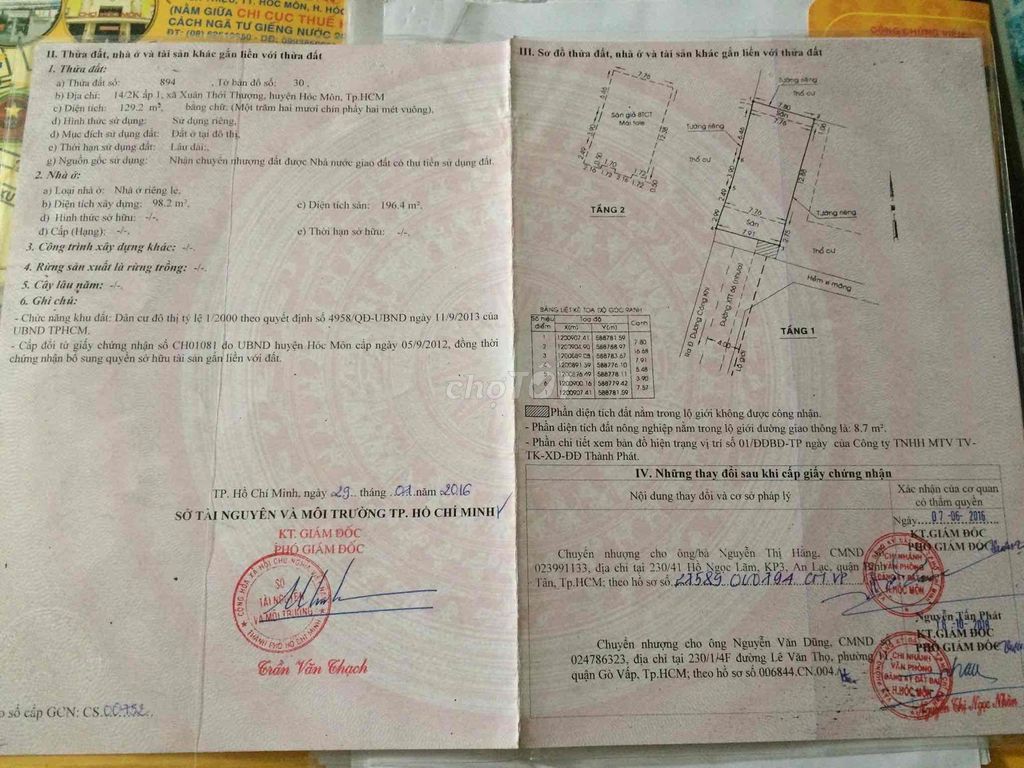 TT. HÓC MÔN, H. HÓC
(NẰM GIỮA CHI CỤC THUẾ
CÁCH NGÃ TƯ GIẾNG NƯỚC
II. Thửa đất, nhà ở và tài sản khác gắn liền với thửa đất
1. Thửa đất:
a) Thửa đất số: 894 , Tờ bản đồ số: 30,
b) Địa chỉ: 14/2K ấp 1, xã Xuân Thới Thượng, huyện Hóc Môn, Tp.HCM
c) Diện tích: 129.2 m², bằng chữ: (Một trăm hai mươi chín phẩy hai mét vuông).
d) Hình thức sử dụng: Sử dụng riêng,
đ) Mục đích sử dụng đất: Đất ở tại đô thị,
e) Thời hạn sử dụng đất: Lâu dài;,
g) Nguồn gốc sử dụng: Nhận chuyển nhượng đất được Nhà nước giao đất có thu tiền sử dụng đất.
2. Nhà ở:
a) Loại nhà ở: Nhà ở riêng lẻ,
b) Diện tích xây dựng: 98.2 m², c) Diện tích sàn: 196.4 m².
d) Hình thức sở hữu: -/-.
đ) Cấp (Hạng): -/-. e) Thời hạn sở hữu: -/-.
3. Công trình xây dựng khác: -/-.
4. Rừng sản xuất là rừng trồng: -/-.
5. Cây lâu năm: -/-.
6. Ghi chú:
- Chức năng khu đất: Dân cư đô thị tỷ lệ 1/2000 theo quyết định số 4958/QĐ-UBND ngày 11/9/2013 của
UBND TPHCM.
- Cấp đổi từ giấy chứng nhận số CH01081 do UBND huyện Hóc Môn cấp ngày 05/9/2012, đồng thời
chứng nhận bổ sung quyền sở hữu tài sản gắn liền với đất.
TP. Hồ Chí Minh, ngày 29 tháng 01 năm 2016
SỞ TÀI NGUYÊN VÀ MÔI TRƯỜNG TP. HỒ CHÍ MINH
KT. GIÁM ĐỐC
PHÓ GIÁM ĐỐC
SỞ
TÀI NGUYÊN
VÀ MÔI TRƯỜNG
THÀNH PHỐ HỒ CHÍ MINH
Trần Văn Thạch
số cấp GCN: CS.00752
III. Sơ đồ thửa đất, nhà ở và tài sản khác gắn liền với thửa đất
7.76
Sàn giả BTCT
Mái tole
12.38
3.90
2.49
2.16
0.50
1.70
1.72
2.16
1.72
0.50
TẦNG 2
Tường riêng
thổ cư
7.80
Sân
7.76
1.90
Tường riêng
6.46
thổ cư
3.90
2.49
12.88
Tường riêng
2.99
7.76
Sân
7.91
2.16
thổ cư
Hẻm xi măng
Ra Đ.Dương Công Khi
4.00
Lộ giới
TẦNG 1
BẢNG LIỆT KÊ TỌA ĐỘ GÓC RANH
Số hiệu điểm Tọa độ Cạnh
X(m) Y(m)
1 1200907.41 588781.59
7.80
2 1200904.90 588788.97
16.68
588783.67
7.91
588776.10
5.48
588778.11
3.90
1200900.16 588779.42
7.57
1 1200907.41 588781.59
chợTốt
Phần diện tích đất nằm trong lộ giới không được công nhận.
- Phần diện tích đất nông nghiệp nằm trong lộ giới đường giao thông là: 8.7 m².
- Phần chi tiết xem bản đồ hiện trạng vị trí số 01/ĐĐBĐ-TP ngày của Công ty TNHH MTV TV-
TK-XD-ĐĐ Thành Phát.
IV. Những thay đổi sau khi cấp giấy chứng nhận
Nội dung thay đổi và cơ sở pháp lý
Xác nhận của cơ quan
có thẩm quyền
Ngày 07-06-2016
KT.GIÁM ĐỐC
PHÓ GIÁM ĐỐC
Chuyển nhượng cho ông/bà Nguyễn Thị Hằng, CMND
023991133, địa chỉ tại 230/41 Hồ Ngọc Lãm, KP3, An Lạc, quận Bình
Tân, Tp.HCM; theo hồ sơ số
CHI NHÁNH
VĂN PHÒNG
ĐĂNG KÝ ĐẤT ĐAI
H.HÓC MÔN
Nguyễn Tấn Phát
KT.GIÁM ĐỐC
PHÓ GIÁM ĐỐC
Chuyển nhượng cho ông Nguyễn Văn Dũng, CMND số
024786323, địa chỉ tại 230/1/4F đường Lê Văn Thọ, phường
quận Gò Vấp, Tp.HCM; theo hồ sơ số 006844.CN.004
CHI NHÁNH
VĂN PHÒNG
ĐĂNG KÝ ĐẤT ĐAI
H.HÓC MÔN
Nguyễn Thị Ngọc Nhân